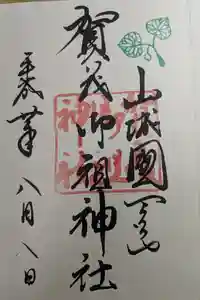 山城國一宮
賀茂御祖神社
平成年八月八日